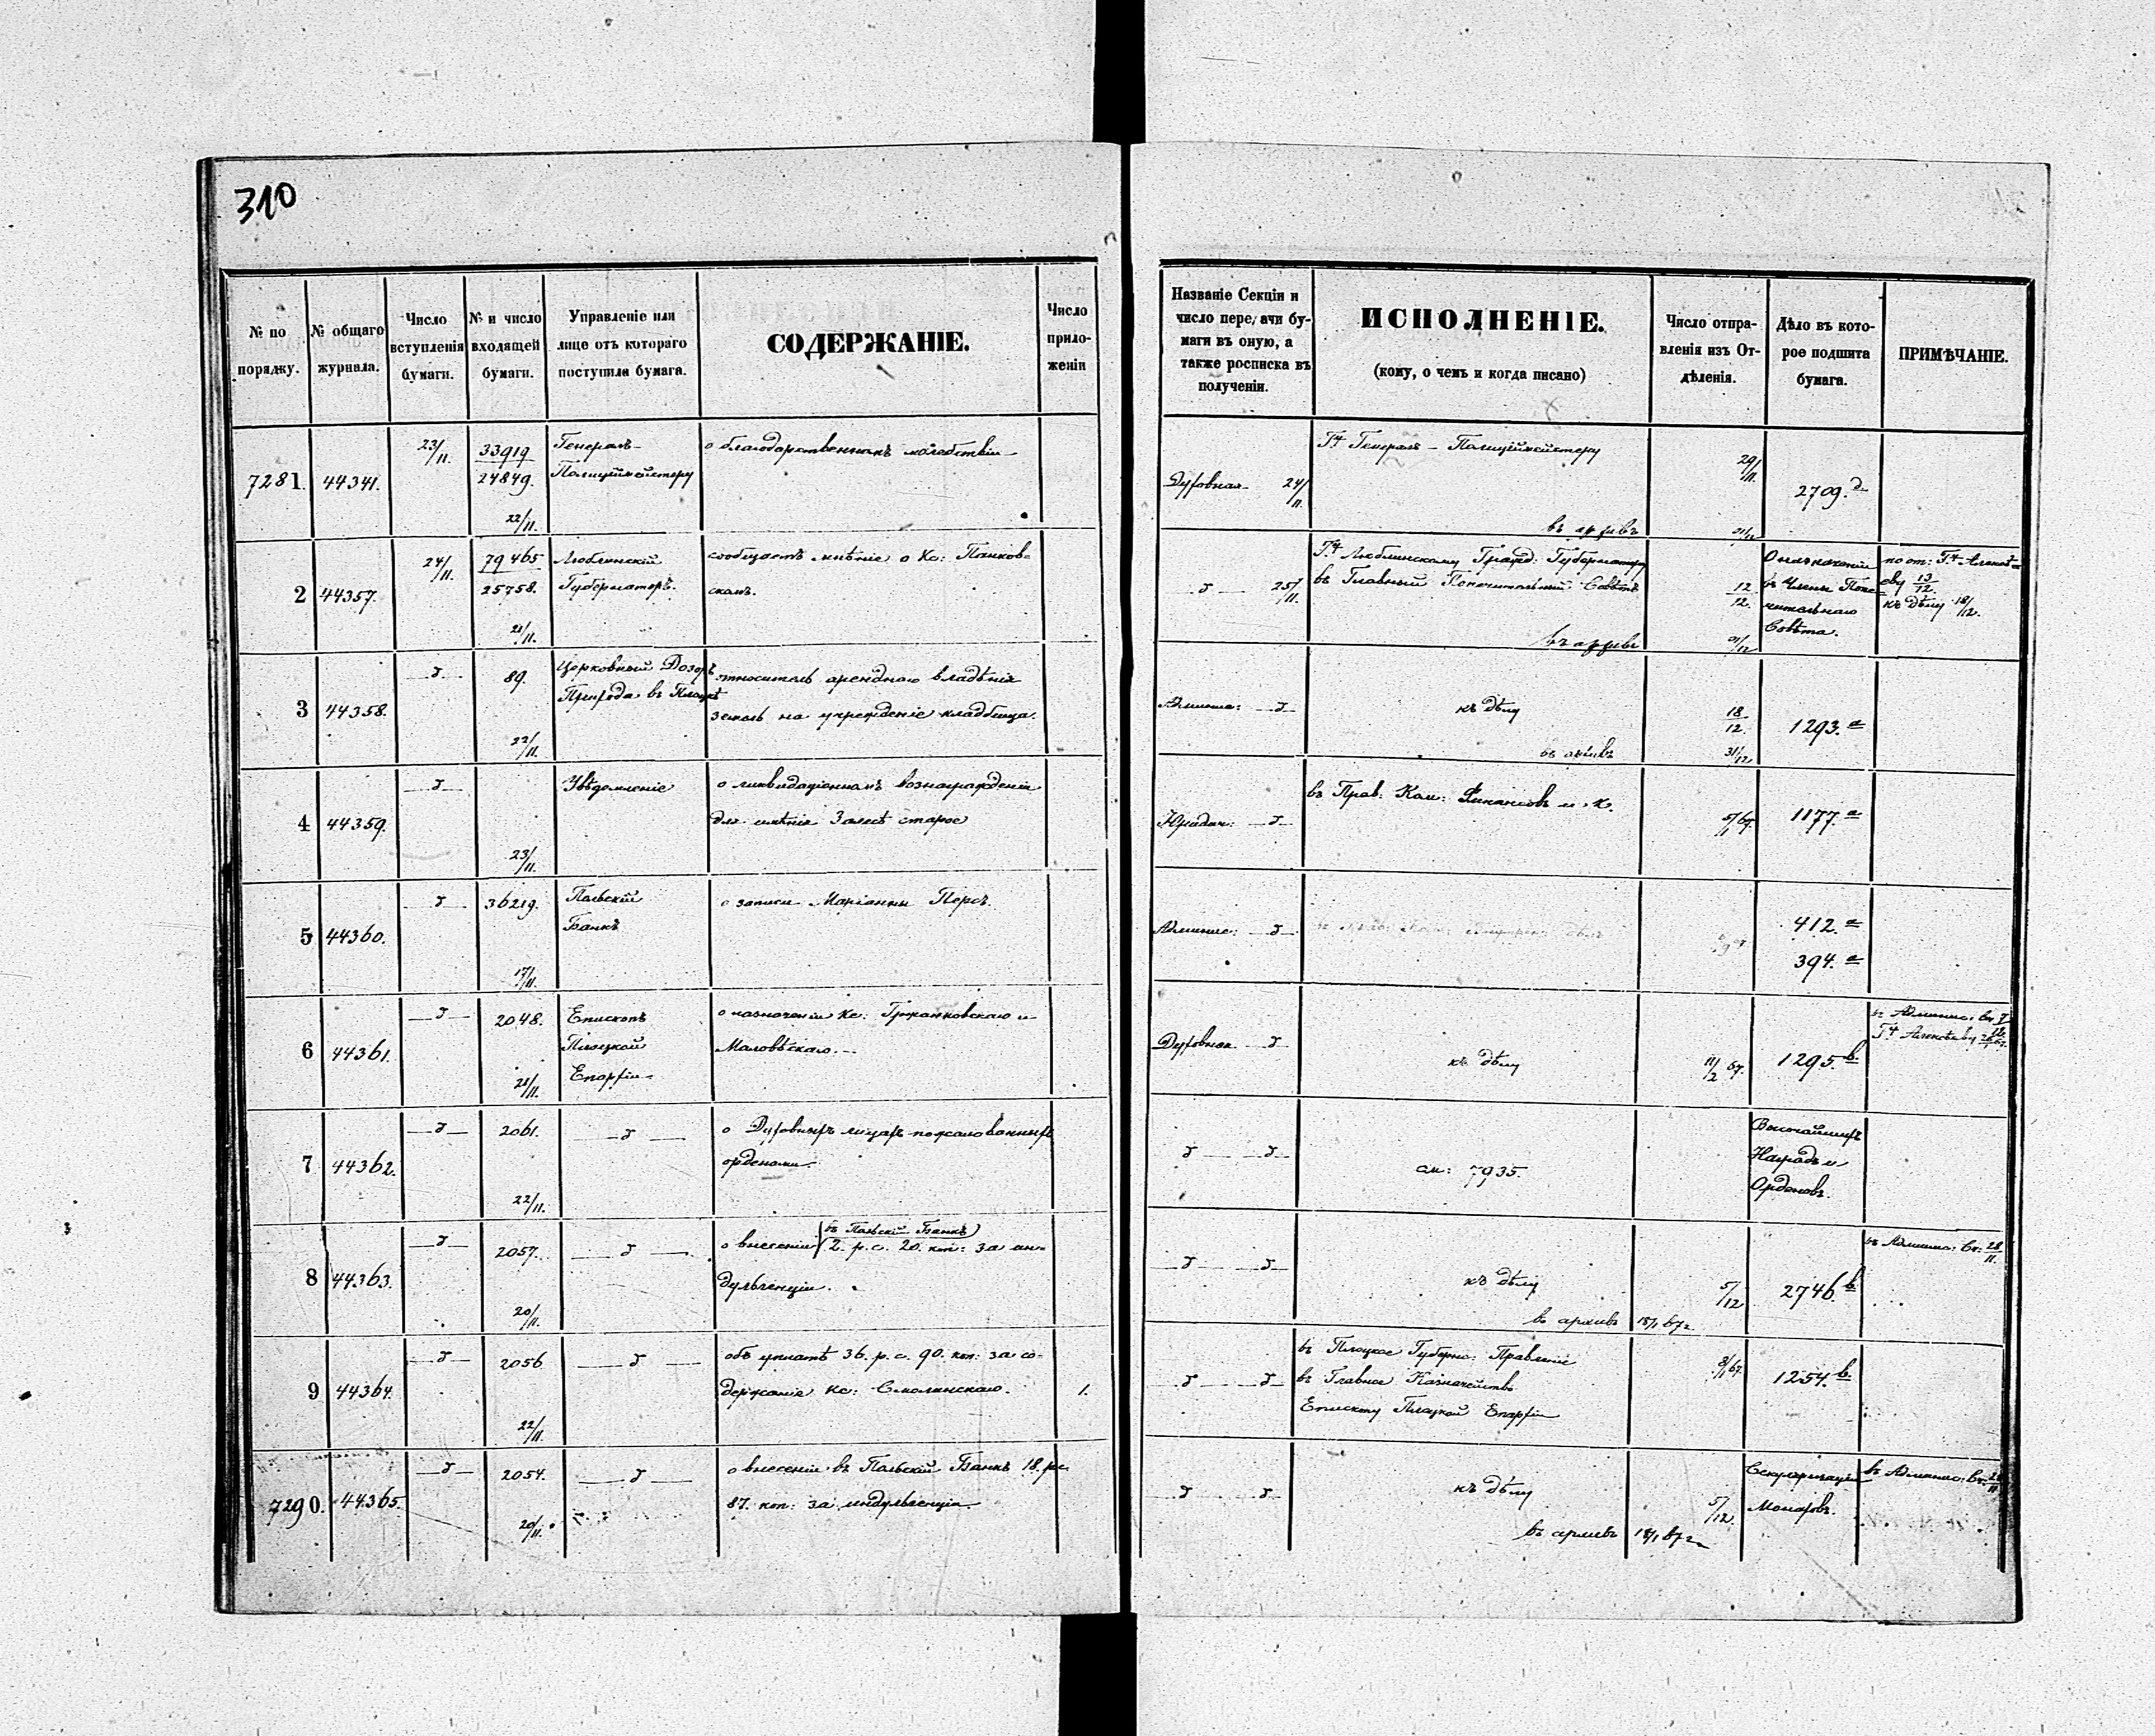 310
№ по порядку.
№ общаго журнала.
Число вступленія бумаги.
№ и число входящей бумаги.
Управленіе или лице отъ котораго поступила бумага.
СОДЕРЖАНІЕ.
Число приложеній
Названіе Секціи и число передачи бумаги въ оную, а также росписка въ полученіи.
ИСПОЛНЕНІЕ.
(кому, о чемъ и когда писано)
Число отправленія изъ Отдѣленія.
Дѣло въ которое подшита бумага.
ПРИМѢЧАНІЕ.
7281. 44341. 23/11. 33919 24849. 22/11.
Генералъ-
Полицеймейстеру
о благодарственномъ молебствіи
Духовная 24/11.
Гну Генералъ-Полицеймейстеру
въ архивъ
29/11.
31/12
2709.
2 44357. 24/11. 79465 25758. 21/11.
Люблинскій
Губернаторъ.
сообщаетъ мнѣніе о Кс: Панков-
скомъ.
25/11.
Гну Люблинскому Гражд: Губернатору
въ Главный Попечительный Совѣтъ
въ архивъ
12/12.
31/12
О назначеніи
въ Члены Попе-
чительнаго
Совѣта.
13/12.
къ дѣлу 18/12.
3 44358. 89. 22/11.
Церковный Дозоръ
въ Плоцкѣ
относительно аренднаго владѣнія
земель на учрежденіе кладбища.
Админис:
къ дѣлу
въ архивъ
18/12.
31/12
1293. а
4 44359. 23/11.
Увѣдомленіе
о ликвидаціонномъ вознагражденіи
для имѣнія Залесѣ старое
Юридич:
въ Прав: Ком: Финансовъ и К.
5/1 67.
1177. а
5 44360. 36219. 17/11.
Польскій
Банкъ
о записи Маріанны Персъ.
Админис:
412. а
394. а
6 44361. 2048. 21/11.
Епископъ
Плоцкой
Епархіи
о назначеніи Кс: Гржанковскаго и
Маловѣскаго.
Духовная
къ дѣлу
11/2 67.
1295. в.
7 44362. 2061. 22/11.
о Духовныхъ лицахъ пожалованныхъ
орденами.
см: 7935.
Высочайшихъ
Наградъ и
Орденовъ.
8 44363. 2057. 20/11.
въ Польскій Банкъ
о внесеніи 2. р. с. 20. коп: за ин-
дульгенціи.
къ дѣлу
въ архивъ 18/1 67 г.
5/12
2746. в
въ Админис: Вт: 28/11.
9 44364. 2056 22/11.
объ уплатѣ 36. р. с. 90. коп: за со-
держаніе Кс: Смолинскаго. 1.
въ Плоцкое Губерн: Правленіе
въ Главное Казначейство
Епископу Плоцкой Епархіи
3/1 67.
1254. в.
7290. 44365. 2054. 20/11.
о внесеніи въ Польскій Банкъ 18. рс.
87. коп: за индульгенціи
къ дѣлу
въ архивъ 18/1 67 г.
5/12.
Секуляризаціи
Монаховъ.
въ Админис: Вт: